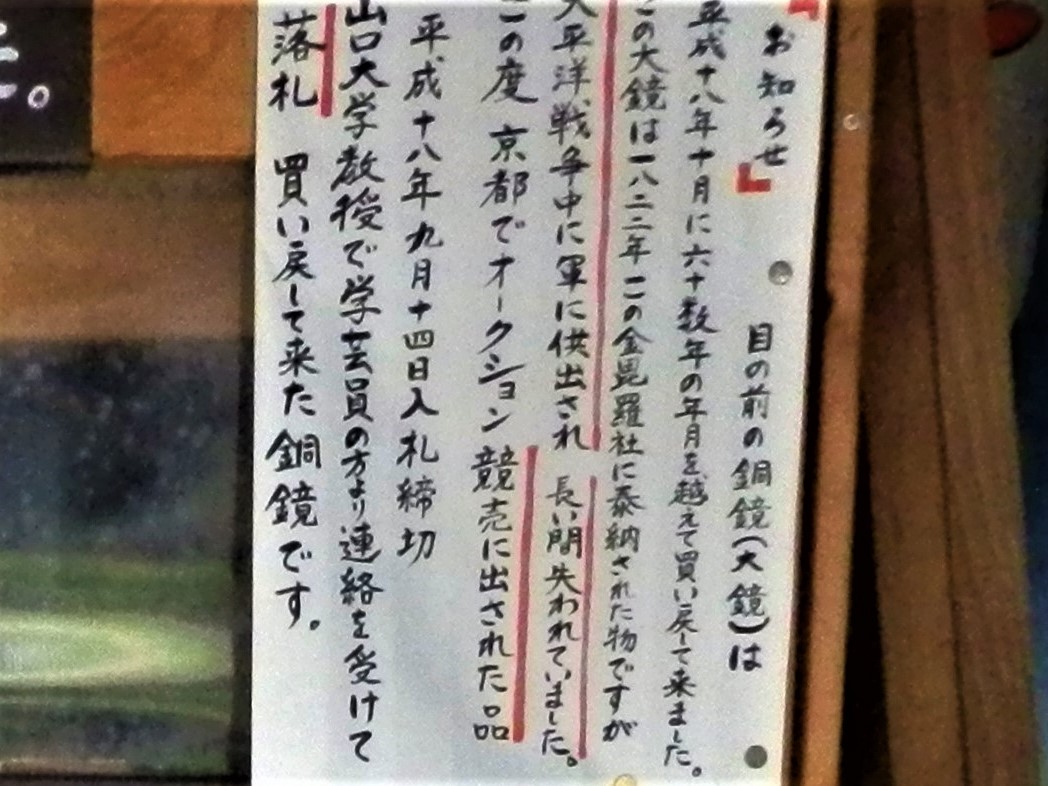 お知らせ 目の前の銅鏡(大鏡)は
平成十八年十月に六十数年の年月を越えて買い戻して来ました。
この大鏡は一八二二年この金毘羅社に奉納された物ですが
大平洋戦争中に軍に供出され 長い間失われていました。
この度 京都でオークション 競売に出された品
平成十八年九月十四日入札締切
山口大学教授で学芸員の方より連絡を受けて
落札 買い戻して来た銅鏡です。